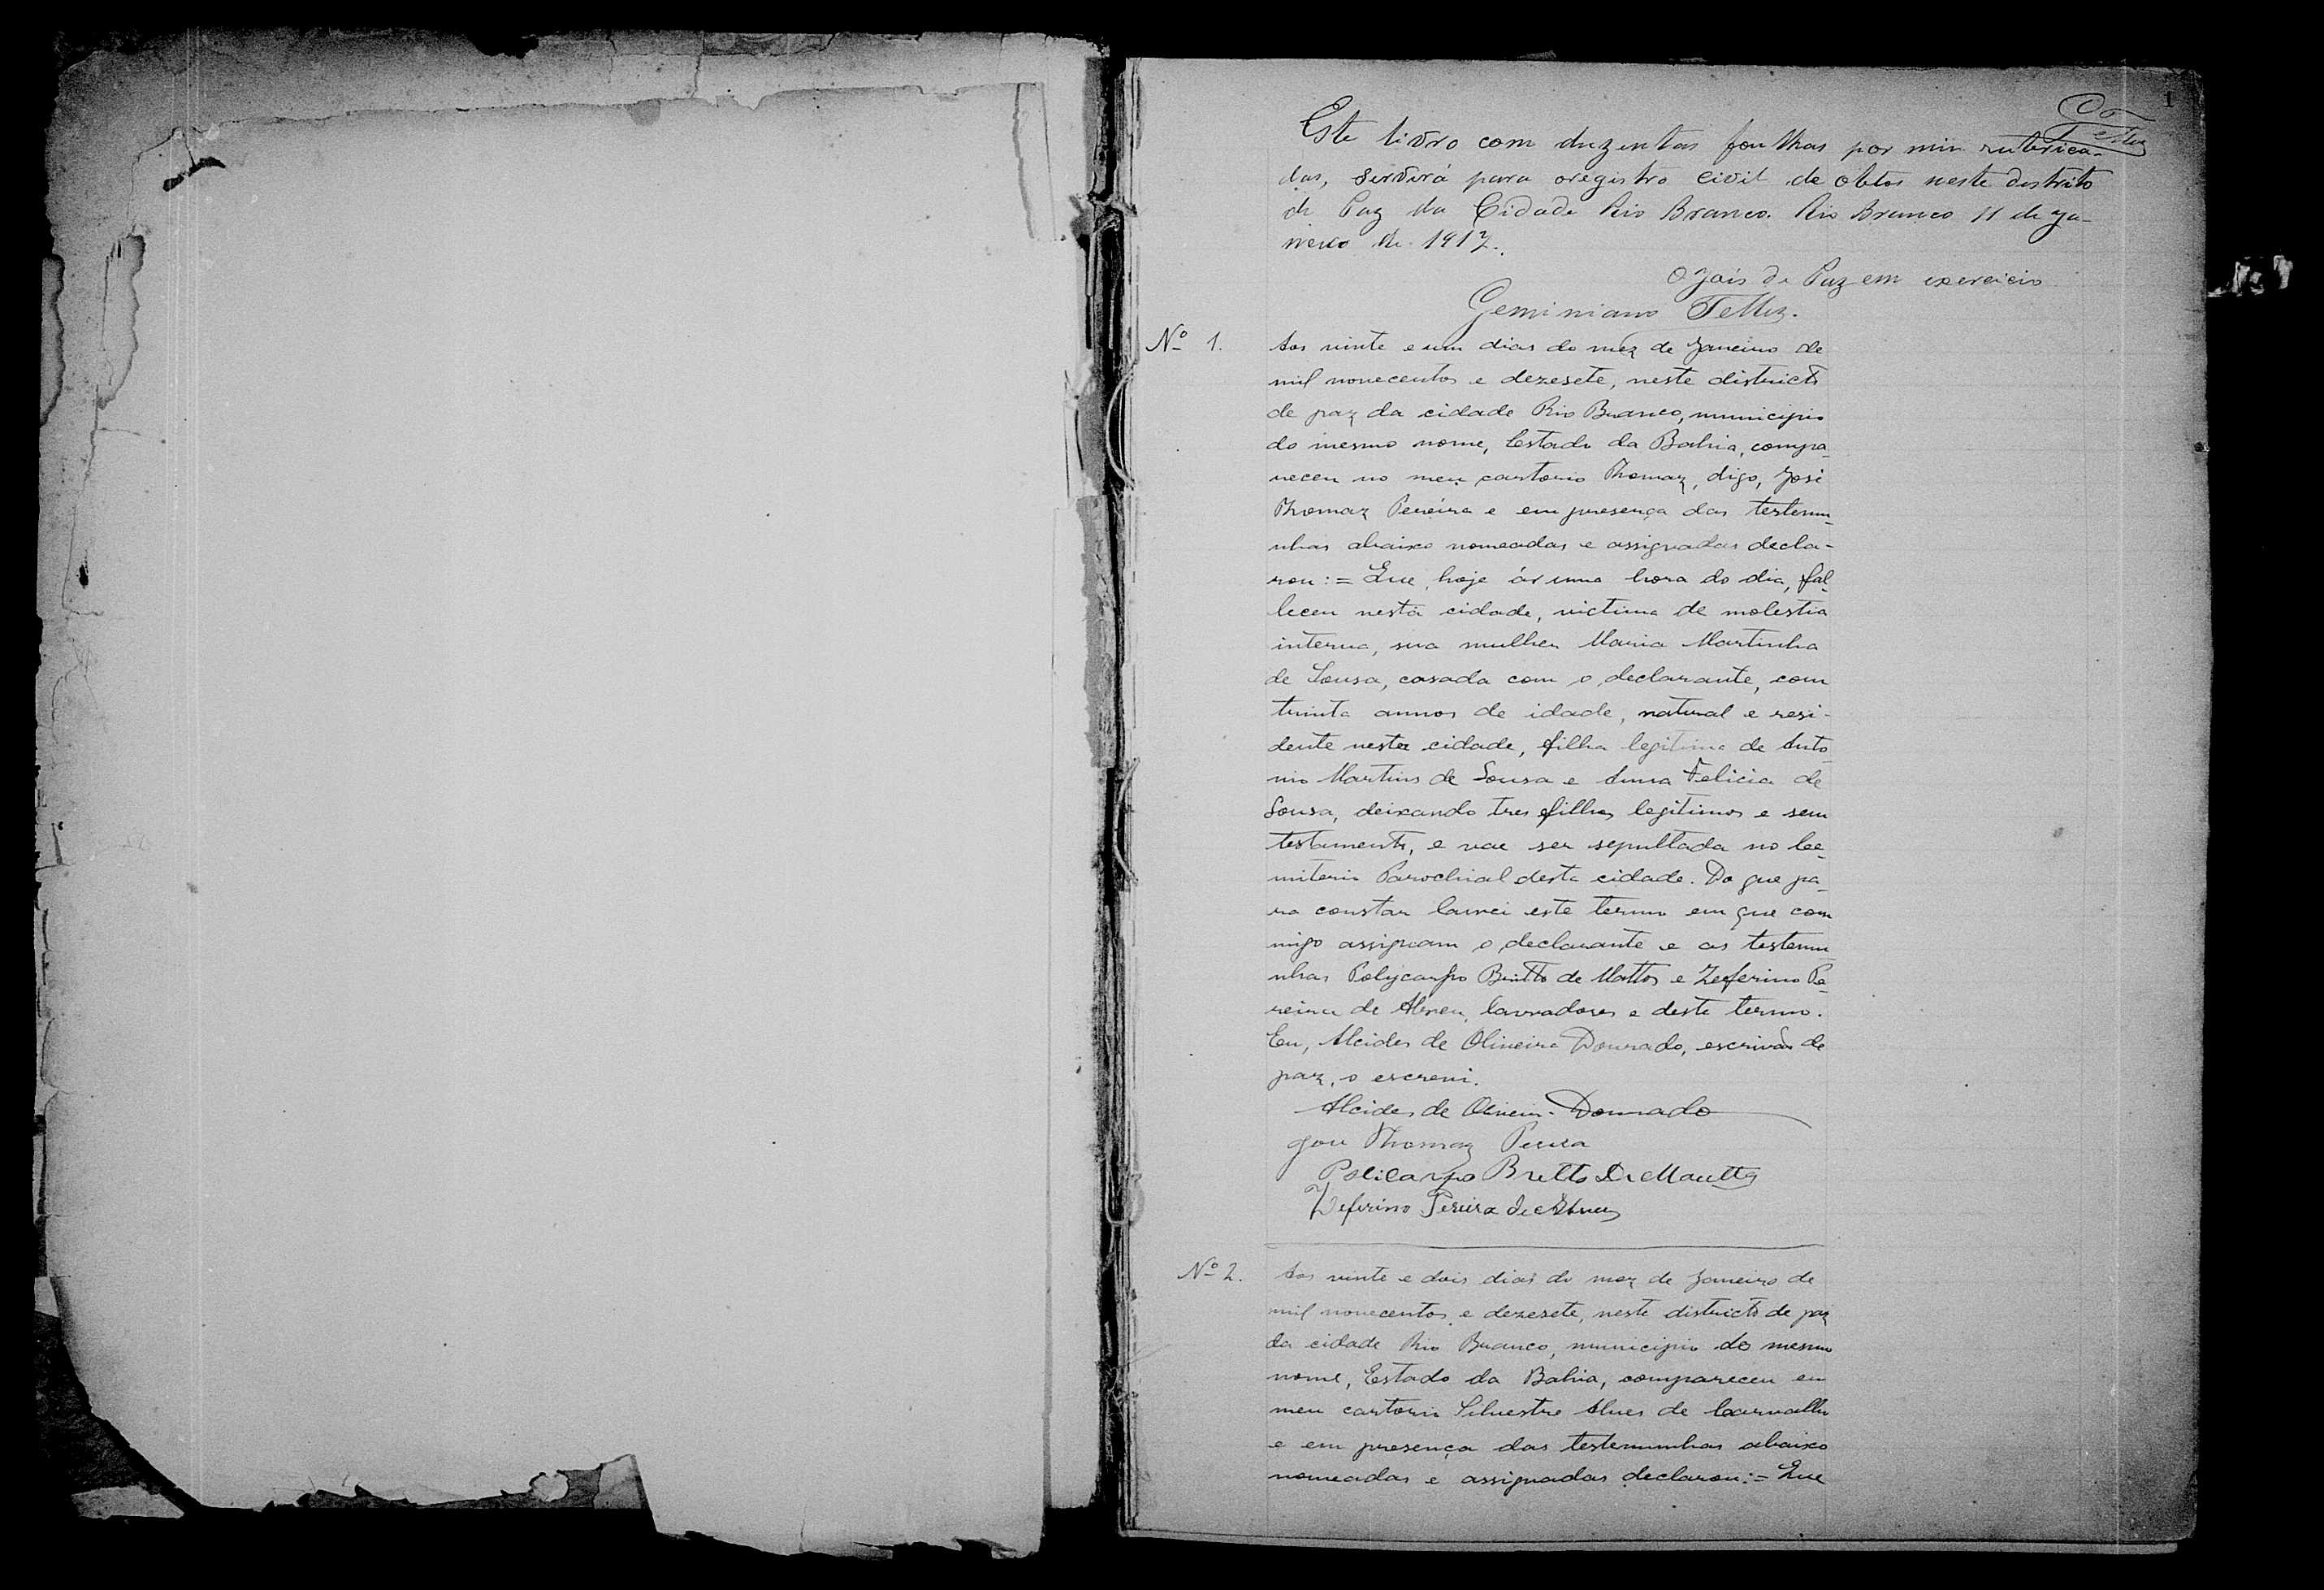 1
Este livro com duzentas foulhas por mim rubrica-
das, servirá para o registro civil de obtos neste destrito
de Paz da Cidade Rio Branco. Rio Branco 11 de ja-
neiro de 1917.
O Jois de Paz em exercicio
Geminiano Telles.
Nº 1.
Aos vinte e um dias do mez de Janeiro de
mil novecentos e dezesete, neste districto
de paz da cidade Rio Branco, municipio
do mesmo nome, Estado da Bahia, compa-
receu no meu cartorio Thomaz, digo, José
Thomaz Pereira e em presença das testemu-
nhas abaixo nomeadas e assignadas decla-
rou:= Que, hoje ás uma hora do dia, fal-
leceu nesta cidade, victima de molestia
interna, sua mulher Maria Martinha
de Sousa, casada com o declarante, com
trinta annos de idade, natural e resi-
dente nesta cidade, filha legitima de Anto
nio Martins de Sousa e Anna Felicia de
Sousa, deixando tres filhos legitimos e sem
testamento, e vae ser sepultada no Ce-
miterio Parochial desta cidade. Do que pa-
ra constar lavrei este termo em que com
migo assignam o declarante e as testemu
nhas Polycarpo Britto de Mattos e Zeferino Pe-
reira de Abreu, lavradores e deste termo.
Eu, Alcides de Oliveira Dourado, escrivão de
paz, o escrevi.
Alcides de Oliveira Dourado
José Thomaz Pereira
Policarpo Britto De Mautto
Zeferino Pereira de Abreu
Nº 2.
Aos vinte e dois dias do mez de Janeiro de
mil novecentos e dezesete, neste districto de paz
da cidade Rio Branco, municipio do mesmo
nome, Estado da Bahia, compareceu em
meu cartorio Silvestre Alves de Carvalho
e em presença das testemunhas abaixo
nomeadas e assignadas declarou:= Que